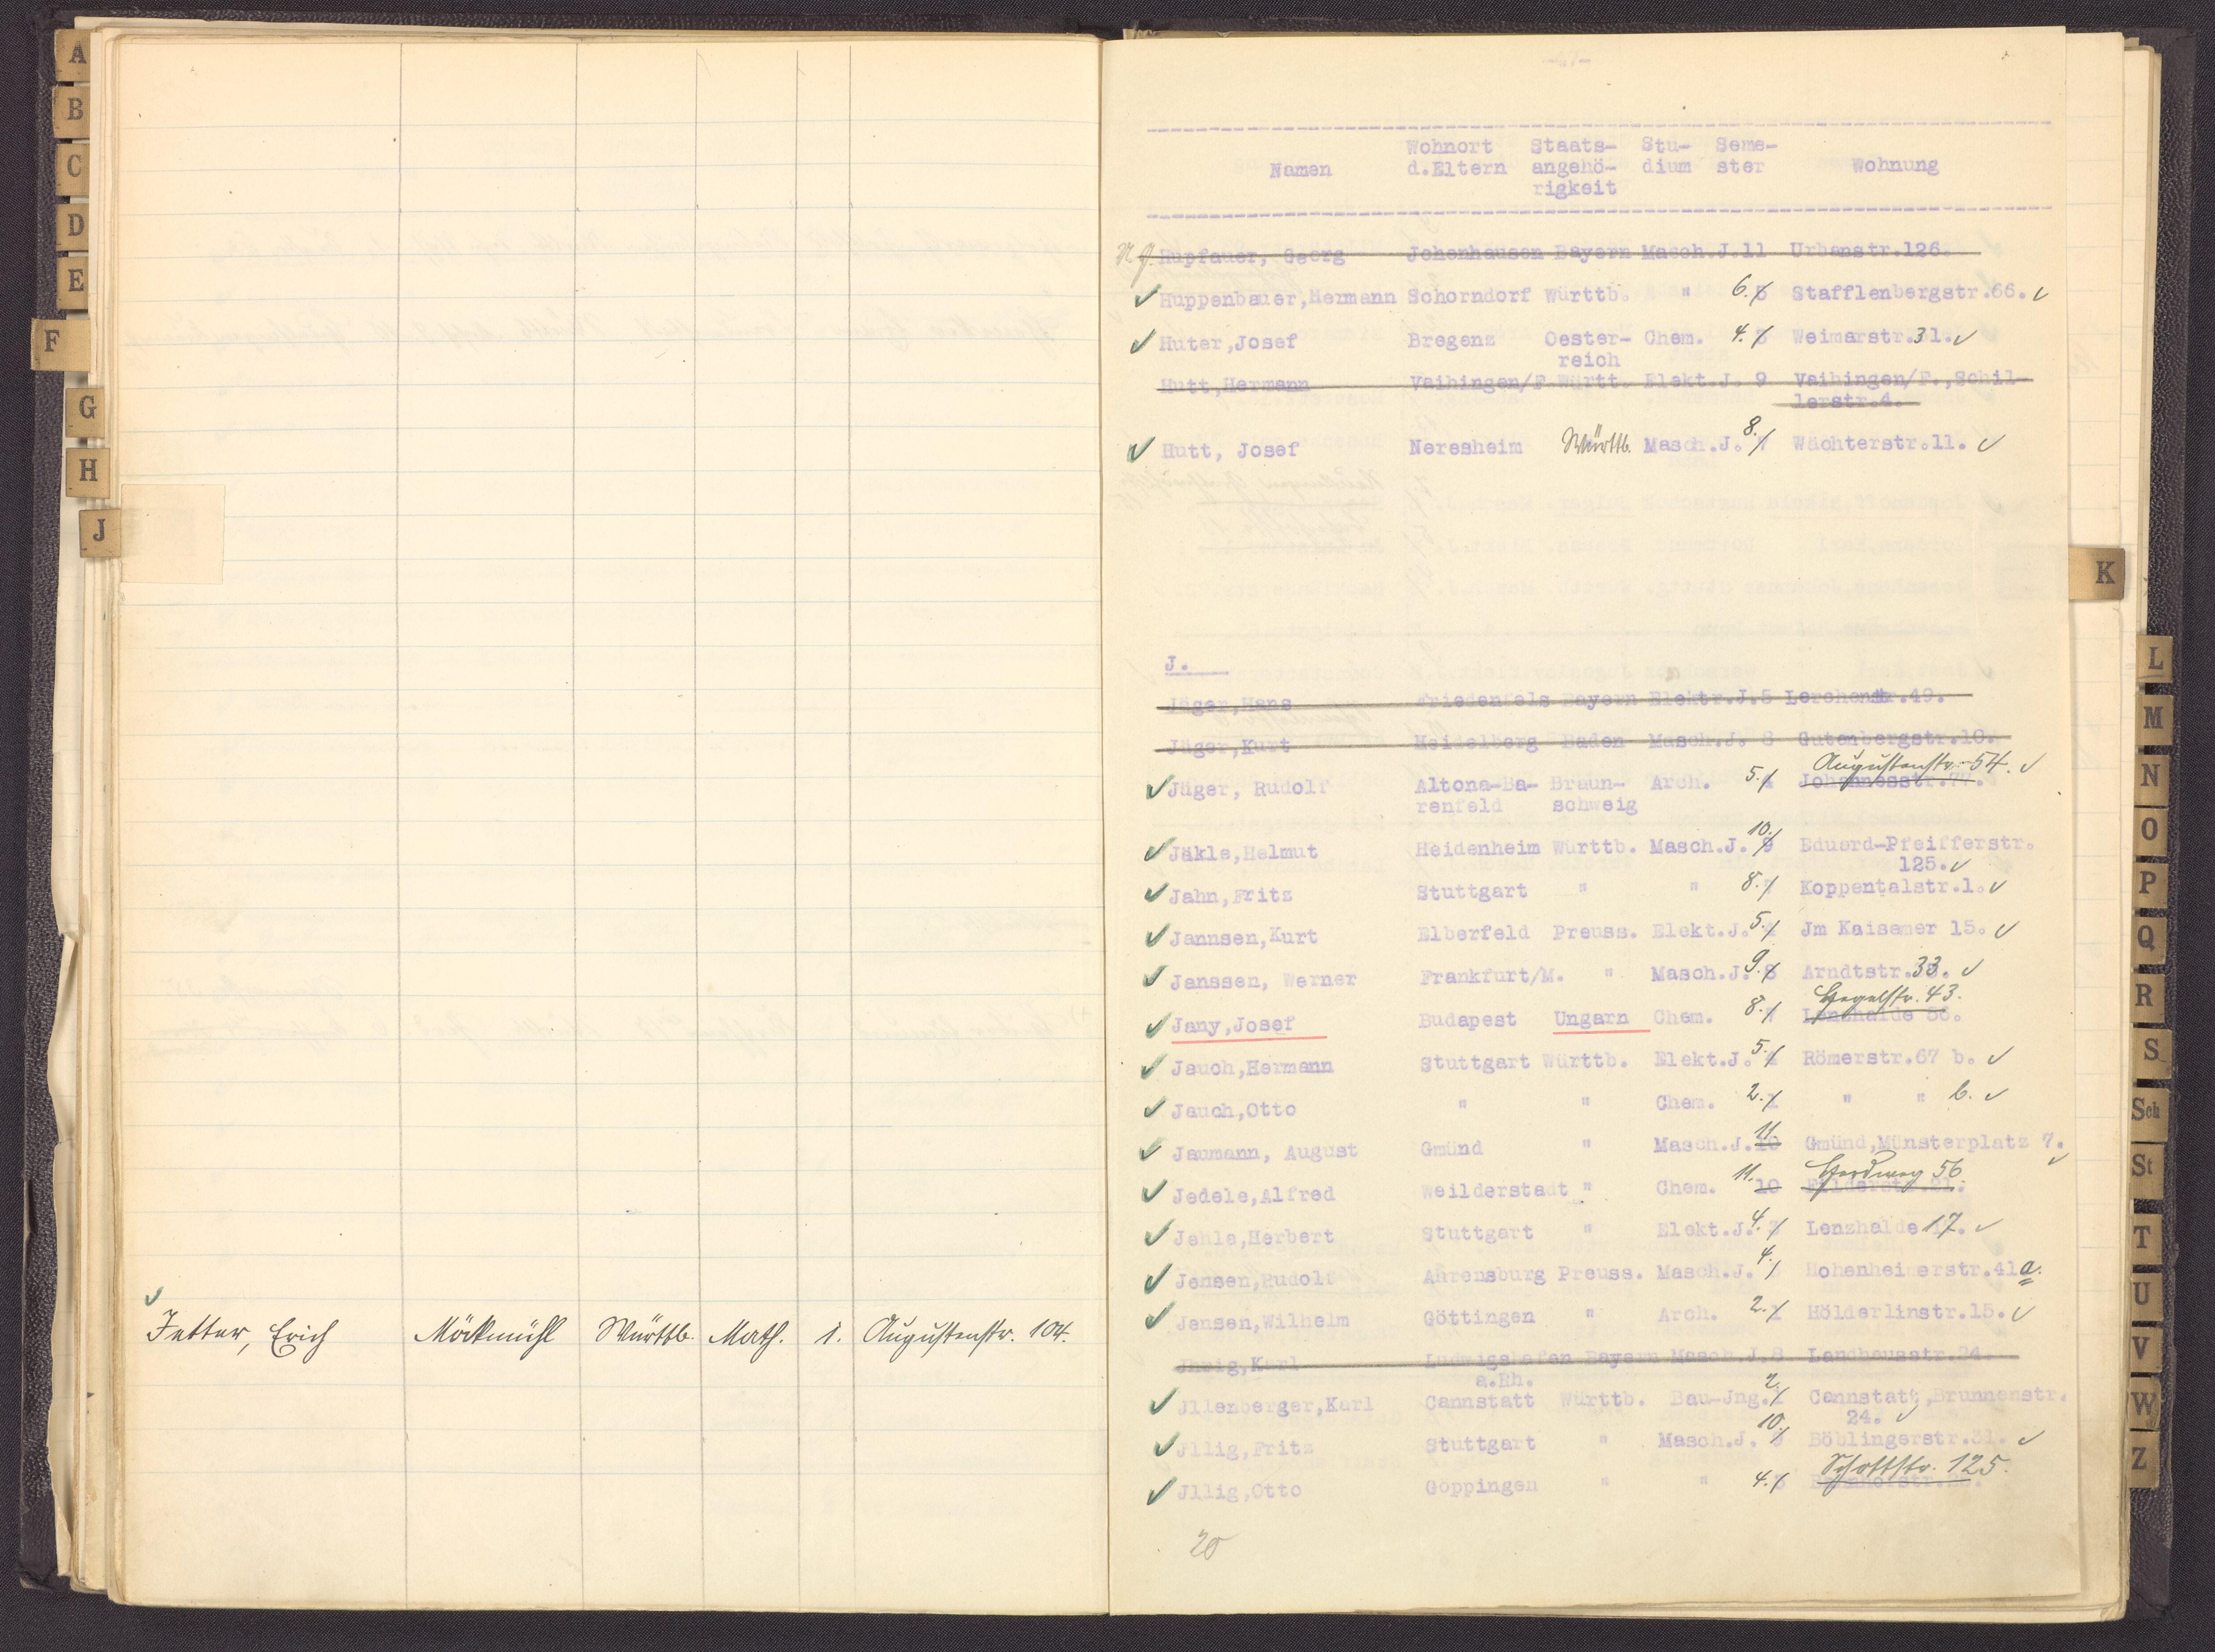 A
B
C
D
E
F
G
H
J
Jetter, Erich Möckmühl Württb. Math. 1. Augustenstr. 104.
Namen Wohnort d.Eltern Staatsangehö-rigkeit Stu-dium Seme-ster Wohnung
Hupfauer, Georg Johenhausen Bayern Masch.J.11 Urbanstr.126.
Huppenbauer,Hermann Schorndorf Württb. " 6. Stafflenbergstr.66.
Huter,Josef Bregenz Oester- Chem. 4. Weimarstr.31.
reich
Hutt,Hermann Vaihingen/F.Württ. Elekt.J. 9 Vaihingen/F.,Schil-
lerstr.4.
Hutt, Josef Neresheim Württb. Masch.J. 8. Wächterstr.11.
J.
Jäger,Hans Friedenfels Bayern Elektr.J.5 Lerchenstr.49.
Jäger,Kurt Heidelberg Baden Masch.J. 8 Gutenbergstr.10.
Augustenstr. 54.
Jäger, Rudolf Altona-Ba- Braun- Arch. 5. 4 Johannesstr.77.
renfeld schweig
Jäkle,Helmut Heidenheim Württb. Masch.J. 10. 9 Eduard-Pfeifferstr.
125.
Jahn,Fritz Stuttgart " " 8. Koppentalstr.1.
Jannsen,Kurt Elberfeld Preuss. Elekt.J. 5. Jm Kaisemer 15.
Janssen, Werner Frankfurt/M. " Masch.J. 9. 8 Arndtstr.33.
Hegelstr. 43.
Jany,Josef Budapest Ungarn Chem. 8. Lenzhalde
Jauch,Hermann Stuttgart Württb. Elekt.J. 5. 4 Römerstr.67 b.
Jauch,Otto " " Chem. 2. " " b.
11
Jaumann, August Gmünd " Masch.J.10 Gmünd,Münsterplatz 7.
Herdweg 56.
Jedele,Alfred Weilderstadt " Chem. 11. 10
Jehle,Herbert Stuttgart " Elekt.J. 4. Lenzhalde 17.
Jensen,Rudolf Ahrensburg Preuss. Masch.J. 4. Hohenheimerstr.41a.
Jensen,Wilhelm Göttingen " Arch. 2. Hölderlinstr.15.
Jhrig,Karl Ludwigshafen Bayern Masch.J.8 Landhausstr.24.
a.Rh.
Jllenberger,Karl Cannstatt Württb. Bau-Jng. 2. Cannstatt,Brunnenstr.
24.
Jllig,Fritz Stuttgart " Masch.J. 10. Böblingerstr.31.
Schottstr. 125.
Jllig,Otto Göppingen " " 4.
20
K
L
M
N
O
P
Q
R
S
Sch
St
T
U
V
W
Z